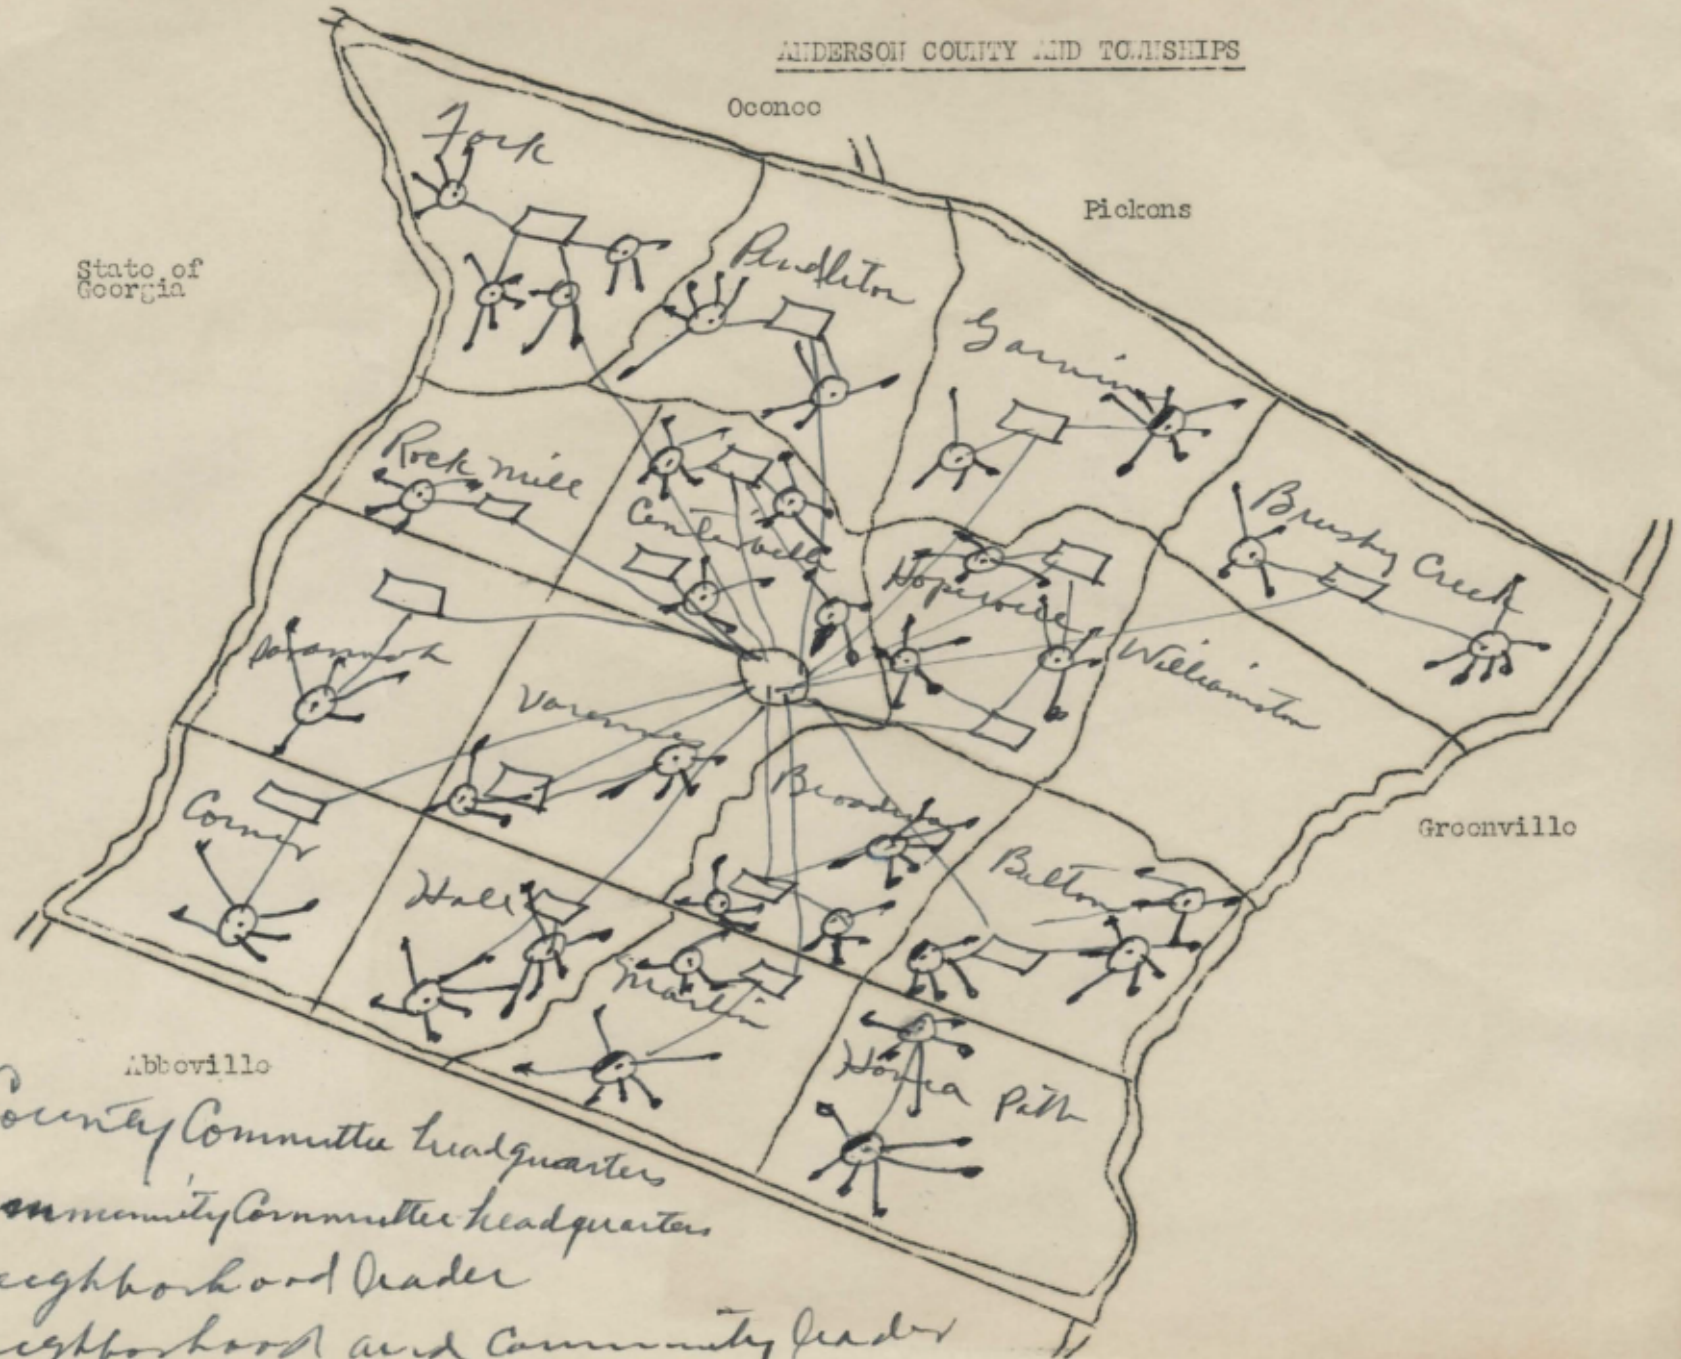 ANDERSON COUNTY AND TOWNSHIPS
Oconee
Pickens
State of
Georgia
Fork
Pendleton
Garvin
Rock Mill
Centerville
Hopewell
Brushy Creek
Williamston
Savannah
Varennes
Broadway
Greenville
Corner
Hall
Belton
Martin
Honea Path
Abbeville
County Committee headquarters
Community Committee headquarters
neighborhood leader
neighborhood and Community leader